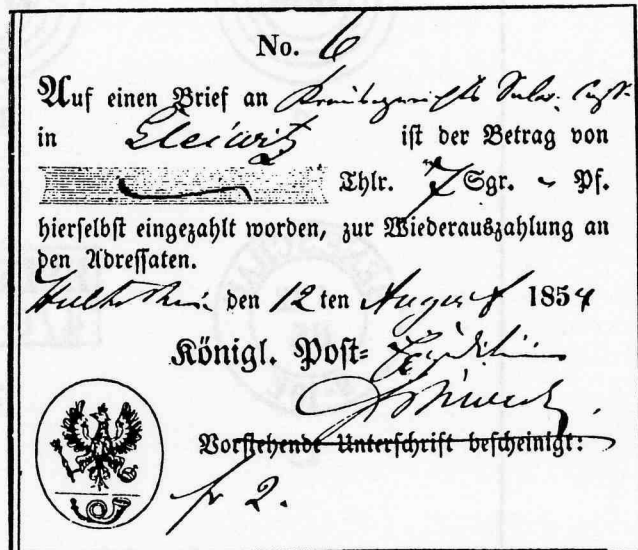 No. 6
Auf einen Brief an Kreisgerichts
in Gleiwitz ist der Betrag von
Thlr. 7 Sgr. - Pf.
hierselbst eingezahlt worden, zur Wiederauszahlung an
den Adressaten.
den 12 ten August 1854
Königl. Post= Expedition
Vorstehende Unterschrift bescheinigt:
fr 2.